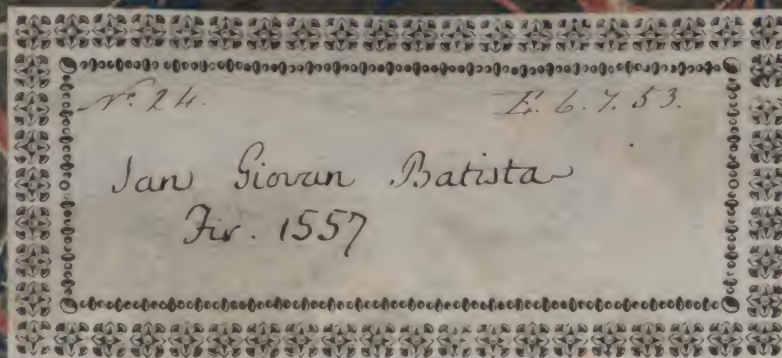 N.º 24. E. 6. 7. 53.
San Giovan Batista
Fir. 1557